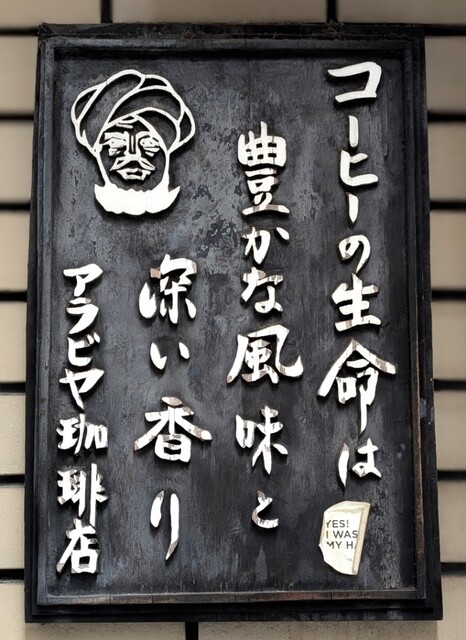 コーヒーの生命は
豊かな風味と
深い香り
アラビヤ珈琲店
YES!
I WAS
MY H